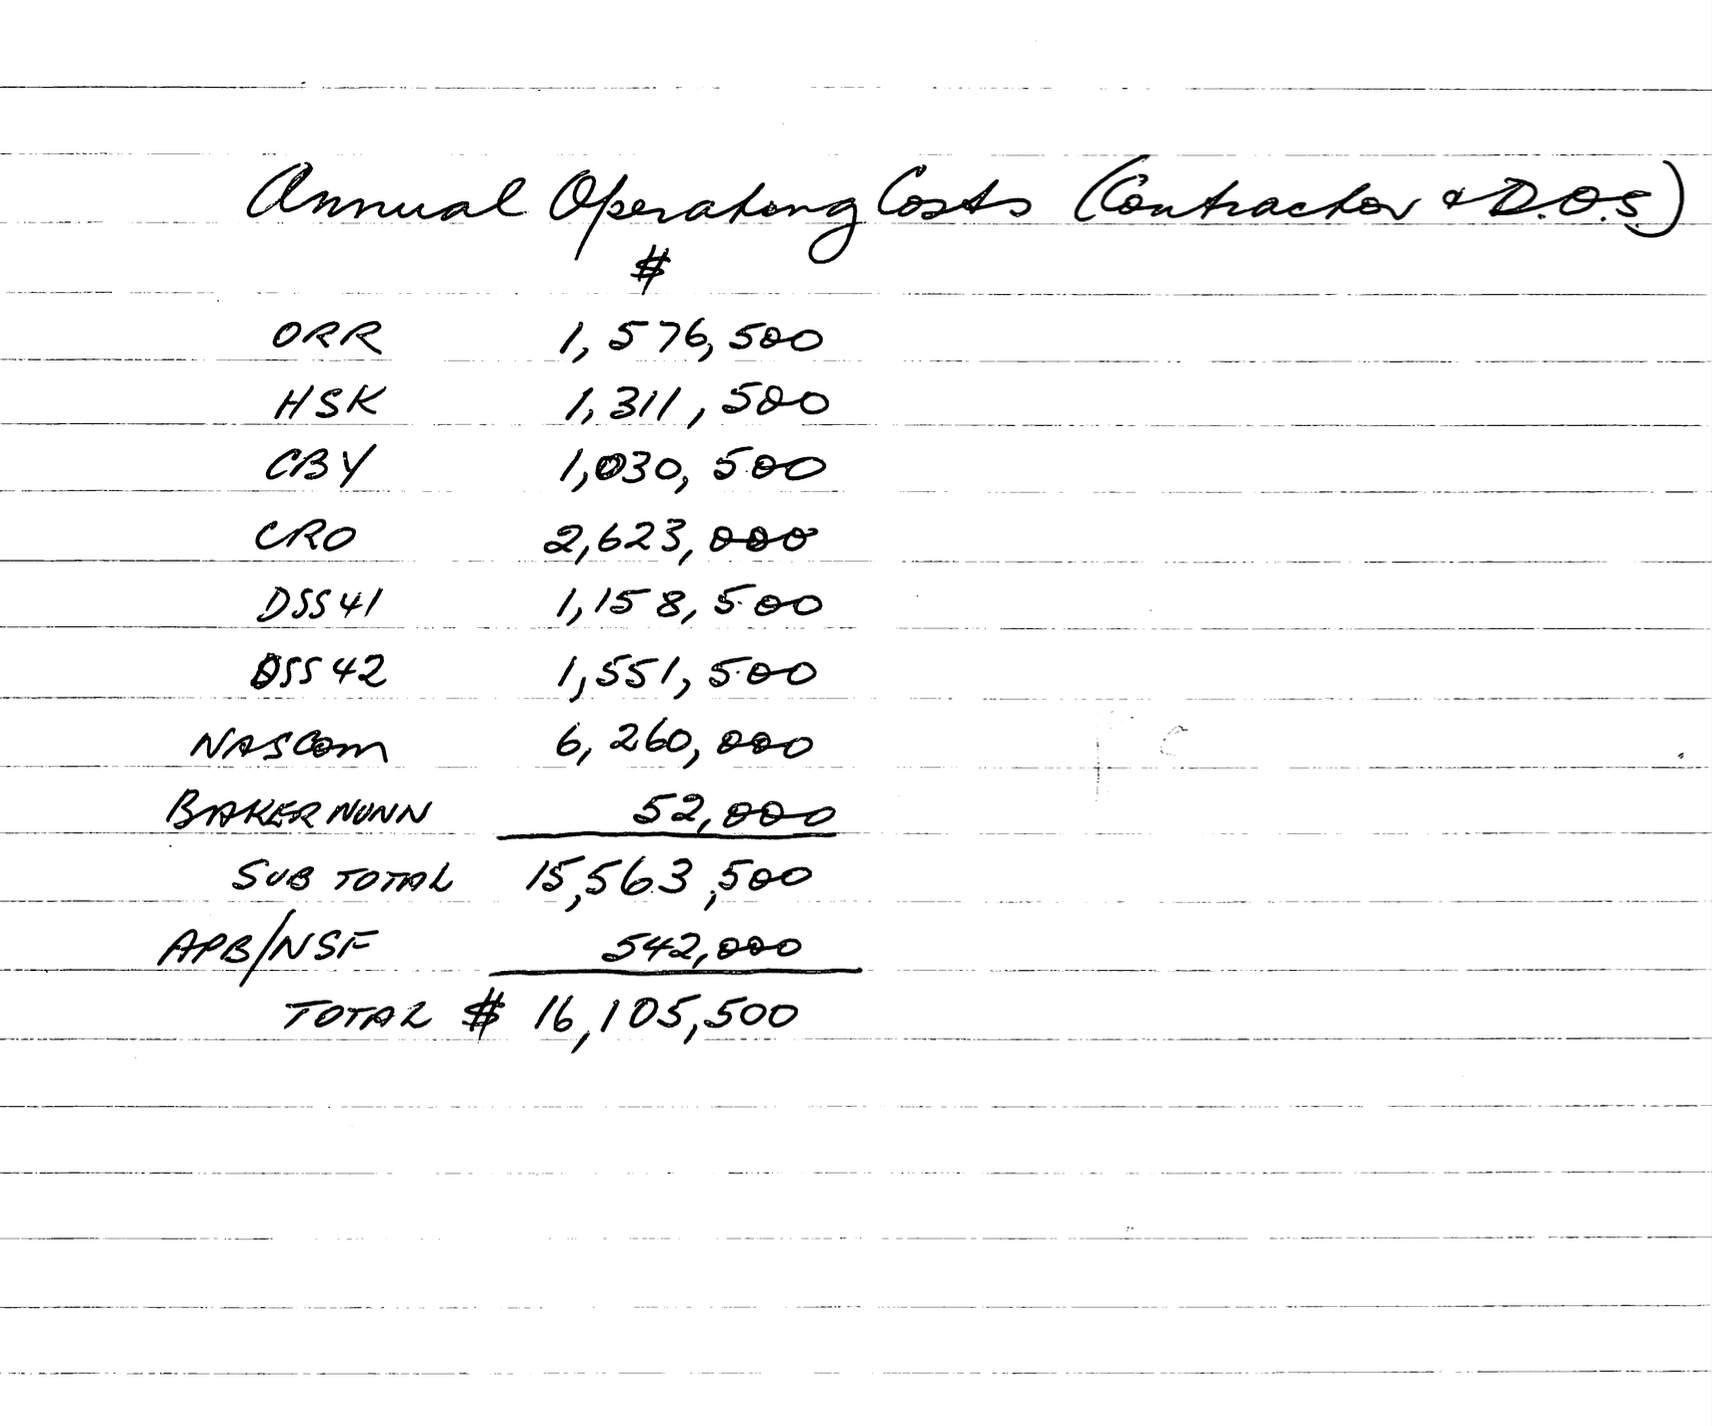 Annual Operating Costs (Contractor & D.O.S.)
$
ORR 1,576,500
HSK 1,311,500
CBY 1,030,500
CRO 2,623,000
DSS41 1,158,500
DSS42 1,551,500
NASCOM 6,260,000
BAKER NUNN 52,000
SUB TOTAL 15,563,500
APB/NSF 542,000
TOTAL $ 16,105,500